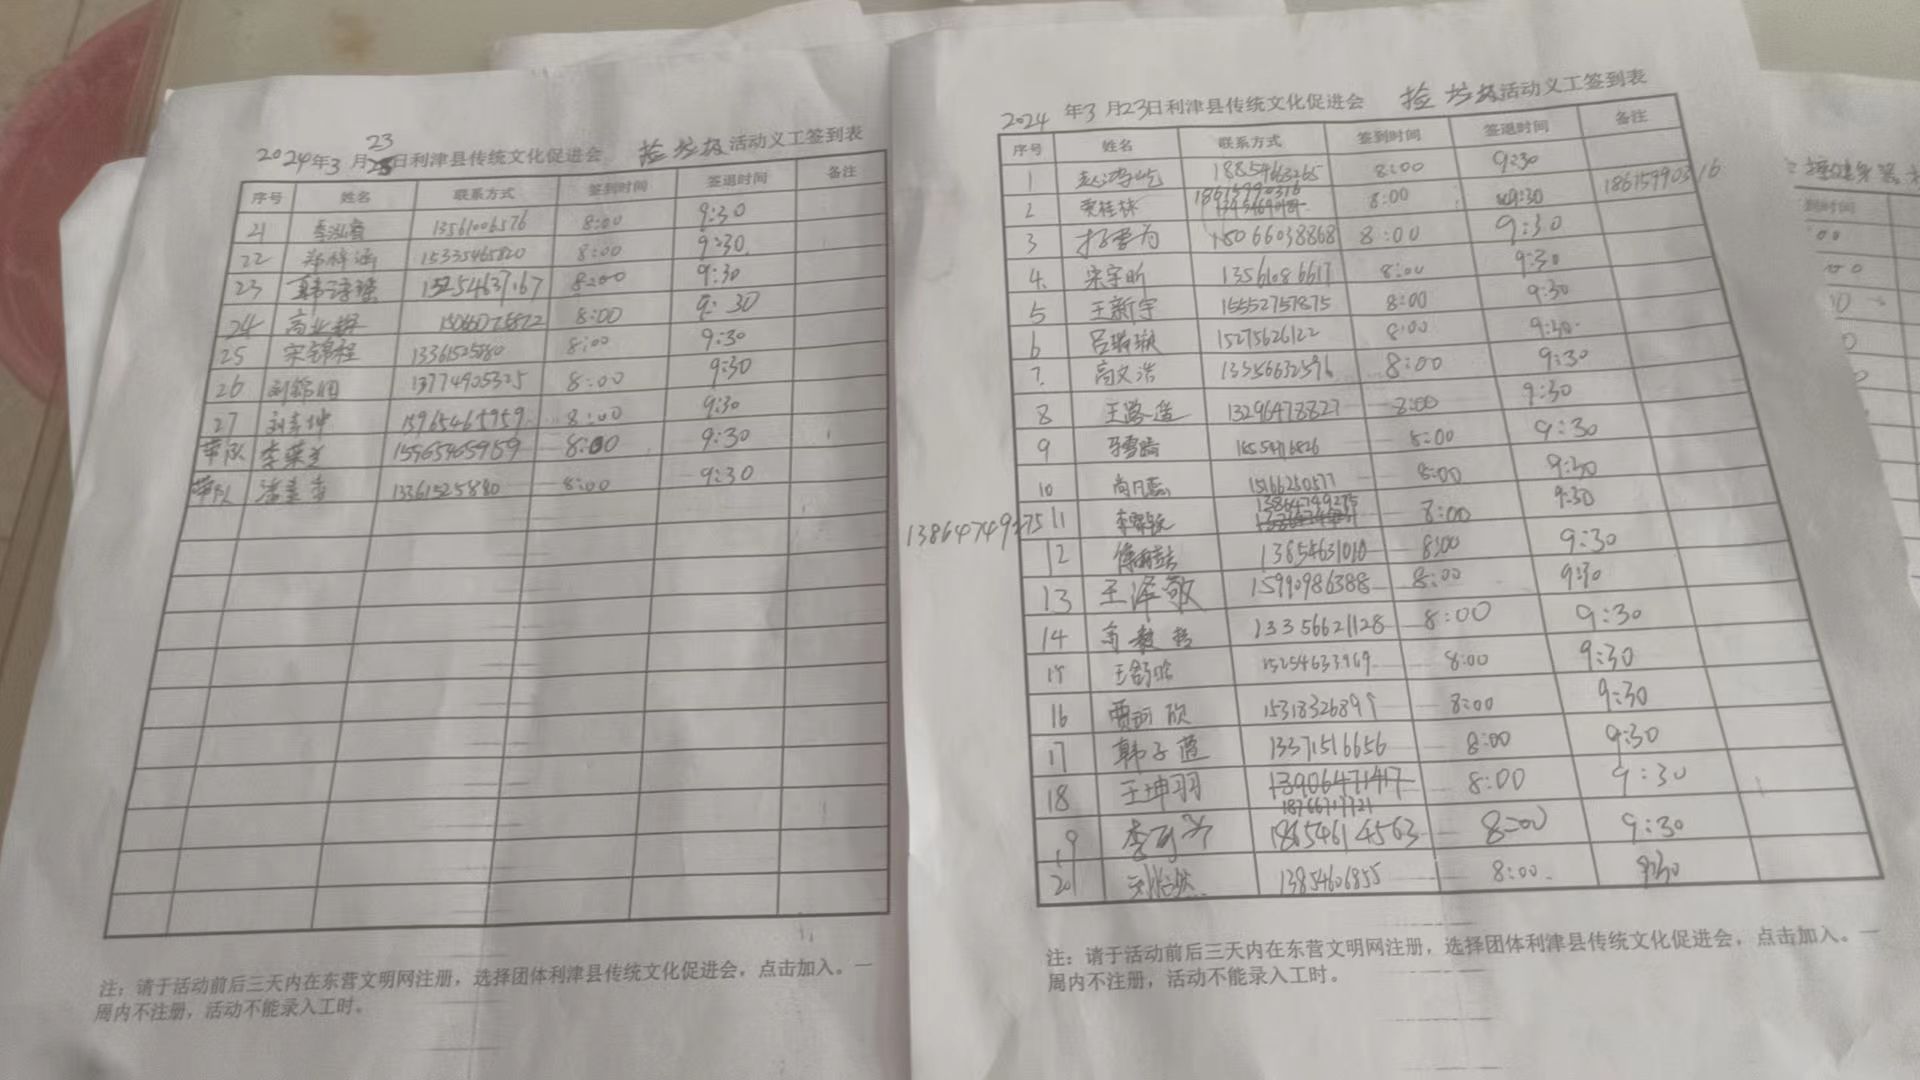 2024年3月23日利津县传统文化促进会 捡垃圾活动义工签到表
序号 姓名 联系方式 签到时间 签退时间 备注
21 李泓睿 13561006576 8:00 9:30
22 郑梓涵 15335465820 8:00 9:30
23 韩 15254637167 8:00 9:30
24 高 8:00 9:30
25 宋锦程 13361525880 8:00 9:30
26 刘 13774905325 8:00 9:30
27 刘 坤 15965465959 8:00 9:30
带队 李荣 15965465959 8:00 9:30
带队 13361525880 8:00 9:30
注：请于活动前后三天内在东营文明网注册，选择团体利津县传统文化促进会，点击加入。一
周内不注册，活动不能录入工时。
2024年3月23日利津县传统文化促进会 捡垃圾活动义工签到表
序号 姓名 联系方式 签到时间 签退时间 备注
1 赵鸿屹 18854663265 8:00 9:30
2 桂林 18615990316 8:00 9:30 18615990316
3 15066038868 8:00 9:30
4 宋宇昕 13561086617 8:00 9:30
5 王新宇 15552757875 8:00 9:30
6 吕 15275626122 8:00 9:30
7 高文浩 13556632596 8:00 9:30
8 王路遥 13296478827 8:00 9:30
9 8:00 9:30
10 尚 15166250577 8:00 9:30
13864749275 11 李 13864749275 8:00 9:30
12 13854631010 8:00 9:30
13 王泽敬 15990986388 8:00 9:30
14 13356621128 8:00 9:30
15 王舒晗 15254633969 8:00 9:30
16 贾 欣 15318326899 8:00 9:30
17 韩子蓝 13371516656 8:00 9:30
18 王坤羽 13906471417 8:00 9:30
18766717721
19 李 18654614563 8:00 9:30
20 刘怡然 13854606855 8:00 9:30
注：请于活动前后三天内在东营文明网注册，选择团体利津县传统文化促进会，点击加入。一
周内不注册，活动不能录入工时。